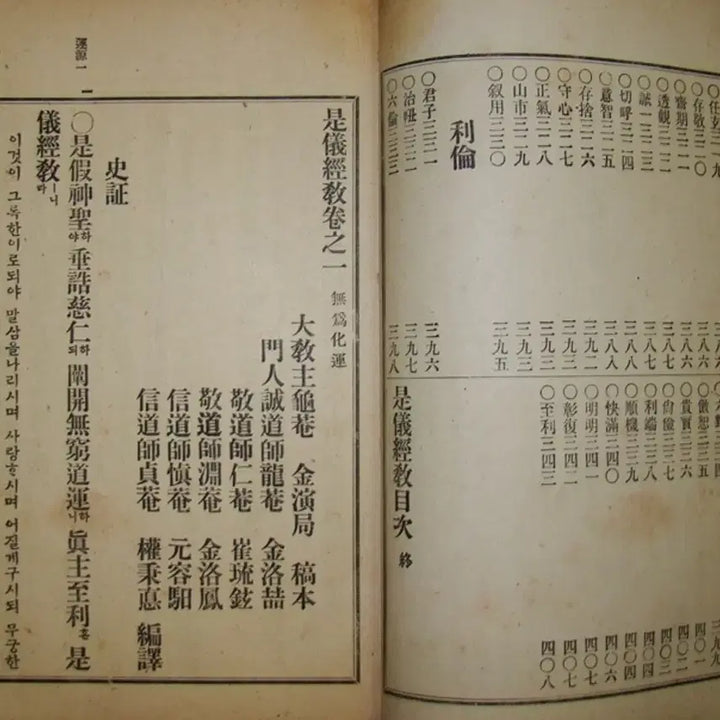 ○存敬三二〇 三八六
○齋期三二一 三八六
○透觀三二二 三八七
○誠一三二三 三八七
○切 三二四 三八八
○意智三二五 三八八
○存捨三二六 三九二
○守心三二七 三九三
○正氣三二八 三九三
○山市三二九 三九三
○叙用三三〇 三九五
利倫
○君子三三一 三九六
○治 三三二 三九七
○六倫三三三 三九八
三三四 三九九
恕三三五 四〇一
○貴賓三三六 四〇二
○尙儉三三七 四〇三
○利端三三八 四〇四
○順機三三九 四〇四
○快滿三四〇 四〇六
○明明三四一 四〇七
○彰復三四二 四〇七
○至利三四三 四〇八
是儀經敎目次 終
是儀經敎卷之一 無爲化運
大敎主龜菴 金演局 稿本
門人誠道師龍菴 金洛喆
敬道師仁菴 崔琉鉉
敬道師淵菴 金洛鳳
信道師愼菴 元容馹
信道師貞菴 權秉悳 編譯
史証
○是假神聖하야垂誥慈仁하되闡開無窮道運하니眞主至利홈是
儀經敎ㅣ니라
이것이 그륵한이로되야 말삼을나리시며 사랑하시며 어질게구시되 무궁한
運源一 一